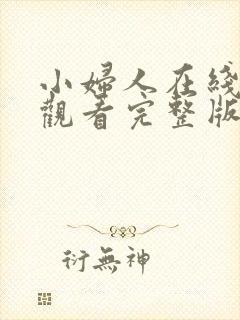 小婦人在綫
觀看完整版
衍無神